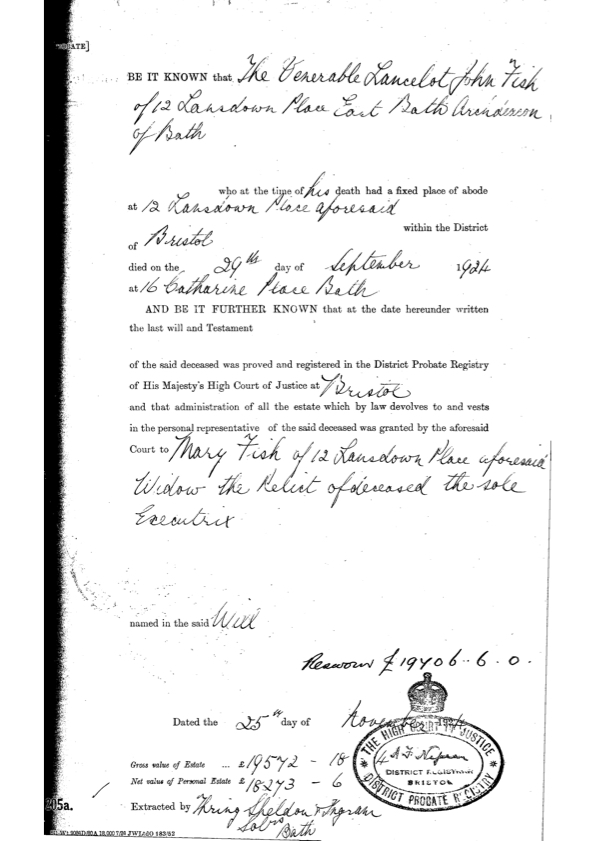 BATE]
BE IT KNOWN that The Venerable Lancelot John Fish
of 12 Lansdown Place East Bath Archdeacon
of Bath
who at the time of his death had a fixed place of abode
at 12 Lansdown Place aforesaid
within the District
of Bristol
died on the 29th day of September 1924
at 16 Catharine Place Bath
AND BE IT FURTHER KNOWN that at the date hereunder written
the last will and Testament
of the said deceased was proved and registered in the District Probate Registry
of His Majesty's High Court of Justice at Bristol
and that administration of all the estate which by law devolves to and vests
in the personal representative of the said deceased was granted by the aforesaid
Court to Mary Fish of 12 Lansdown Place aforesaid
Widow the Relict of deceased the sole
Executrix
named in the said Will
Resworn £19706-6.0.
Dated the 25th day of November 1924
THE HIGH COURT OF JUSTICE
DISTRICT REGISTRAR
BRISTOL
DISTRICT PROBATE REGISTRY
Gross value of Estate ... £19572 - 18
Net value of Personal Estate £18273 - 6
205a.
Extracted by Thring Sheldon & Ingram
Solrs Bath